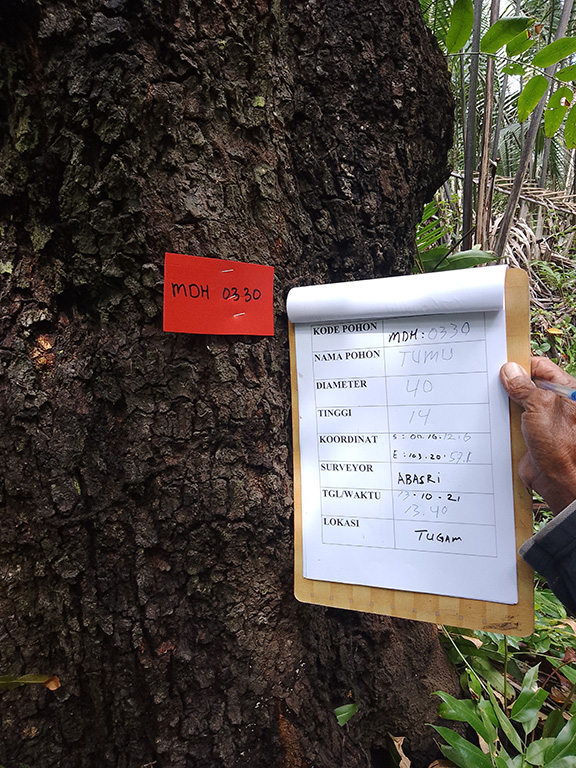 MDH 0330
KODE POHON MDH: 0330
NAMA POHON TUMU
DIAMETER 40
TINGGI 14
KOORDINAT S: 00.16.12.6
E: 103.20.57.1
SURVEYOR ABASRi
TGL/WAKTU 13-10-21
13.40
LOKASI TUGAM